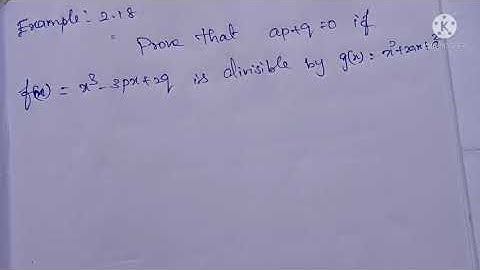 Example: 2.18
Prove that ap+q=0 if
f(x) = x³-3px+2q is divisible by g(x) = x²+2ax+a²